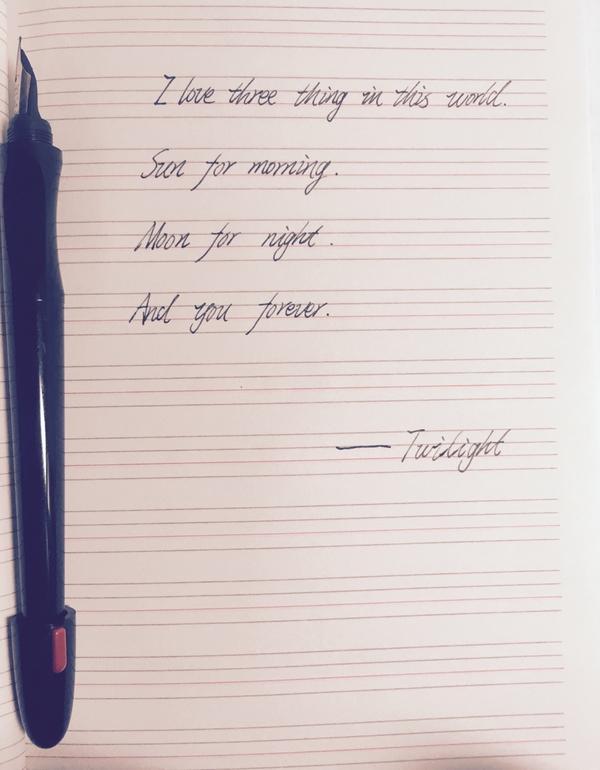 I love three thing in this world.
Sun for morning.
Moon for night.
And you forever.
— Twilight